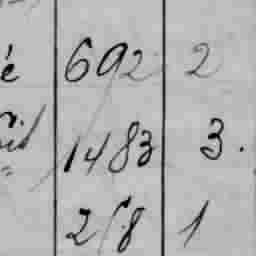 é 692 2
1483 3.
268 1